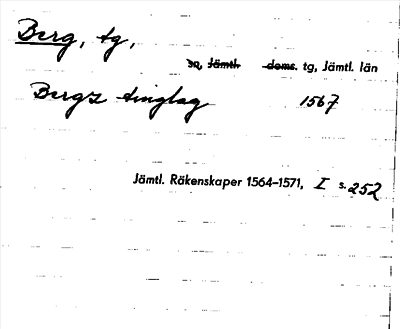 Berg, tg,
sn, Jämtl. doms. tg, Jämtl. län
Bergz tinglag 1567
Jämtl. Räkenskaper 1564-1571, I s. 252